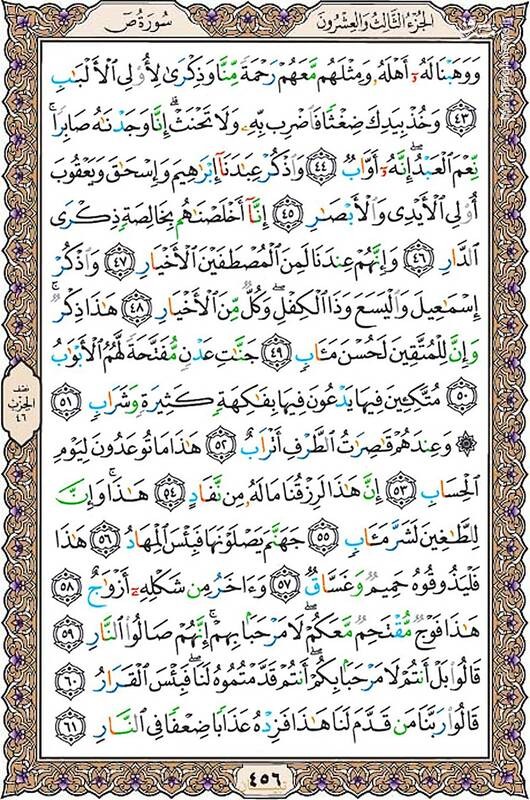 سُورَةُ صٓ
الجُزْءُ الثَّالِثُ وَالعِشْرُونَ
وَوَهَبْنَا لَهُۥٓ أَهْلَهُۥ وَمِثْلَهُم مَّعَهُمْ رَحْمَةً مِّنَّا وَذِكْرَىٰ لِأُو۟لِى ٱلْأَلْبَـٰبِ
﴿٤٣﴾ وَخُذْ بِيَدِكَ ضِغْثًا فَٱضْرِب بِّهِۦ وَلَا تَحْنَثْ ۗ إِنَّا وَجَدْنَـٰهُ صَابِرًا ۚ
نِّعْمَ ٱلْعَبْدُ ۖ إِنَّهُۥٓ أَوَّابٌ ﴿٤٤﴾ وَٱذْكُرْ عِبَـٰدَنَآ إِبْرَٰهِيمَ وَإِسْحَـٰقَ وَيَعْقُوبَ
أُو۟لِى ٱلْأَيْدِى وَٱلْأَبْصَـٰرِ ﴿٤٥﴾ إِنَّآ أَخْلَصْنَـٰهُم بِخَالِصَةٍ ذِكْرَى
ٱلدَّارِ ﴿٤٦﴾ وَإِنَّهُمْ عِندَنَا لَمِنَ ٱلْمُصْطَفَيْنَ ٱلْأَخْيَارِ ﴿٤٧﴾ وَٱذْكُرْ
إِسْمَـٰعِيلَ وَٱلْيَسَعَ وَذَا ٱلْكِفْلِ ۖ وَكُلٌّ مِّنَ ٱلْأَخْيَارِ ﴿٤٨﴾ هَـٰذَا ذِكْرٌ ۚ
وَإِنَّ لِلْمُتَّقِينَ لَحُسْنَ مَـَٔابٍ ﴿٤٩﴾ جَنَّـٰتِ عَدْنٍ مُّفَتَّحَةً لَّهُمُ ٱلْأَبْوَٰبُ
﴿٥٠﴾ مُتَّكِـِٔينَ فِيهَا يَدْعُونَ فِيهَا بِفَـٰكِهَةٍ كَثِيرَةٍ وَشَرَابٍ ﴿٥١﴾
۞ وَعِندَهُمْ قَـٰصِرَٰتُ ٱلطَّرْفِ أَتْرَابٌ ﴿٥٢﴾ هَـٰذَا مَا تُوعَدُونَ لِيَوْمِ
ٱلْحِسَابِ ﴿٥٣﴾ إِنَّ هَـٰذَا لَرِزْقُنَا مَا لَهُۥ مِن نَّفَادٍ ﴿٥٤﴾ هَـٰذَا ۚ وَإِنَّ
لِلطَّـٰغِينَ لَشَرَّ مَـَٔابٍ ﴿٥٥﴾ جَهَنَّمَ يَصْلَوْنَهَا فَبِئْسَ ٱلْمِهَادُ ﴿٥٦﴾ هَـٰذَا
فَلْيَذُوقُوهُ حَمِيمٌ وَغَسَّاقٌ ﴿٥٧﴾ وَءَاخَرُ مِن شَكْلِهِۦٓ أَزْوَٰجٌ ﴿٥٨﴾
هَـٰذَا فَوْجٌ مُّقْتَحِمٌ مَّعَكُمْ ۖ لَا مَرْحَبًۢا بِهِمْ ۚ إِنَّهُمْ صَالُوا۟ ٱلنَّارِ ﴿٥٩﴾
قَالُوا۟ بَلْ أَنتُمْ لَا مَرْحَبًۢا بِكُمْ ۖ أَنتُمْ قَدَّمْتُمُوهُ لَنَا ۖ فَبِئْسَ ٱلْقَرَارُ ﴿٦٠﴾
قَالُوا۟ رَبَّنَا مَن قَدَّمَ لَنَا هَـٰذَا فَزِدْهُ عَذَابًا ضِعْفًا فِى ٱلنَّارِ ﴿٦١﴾
نصف
الحزب
٤٦
٤٥٦